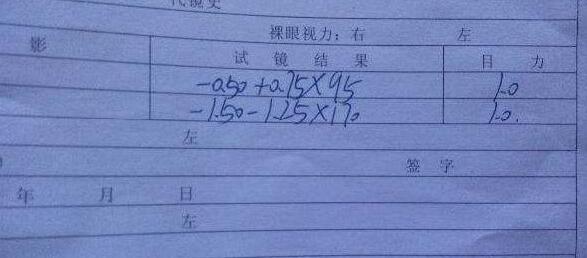 代镜史
裸眼视力：右 左
影 试镜结果 目力
-0.50+0.75×95 1.0
-1.50-1.25×170 1.0.
左
签字
年 月 日
左